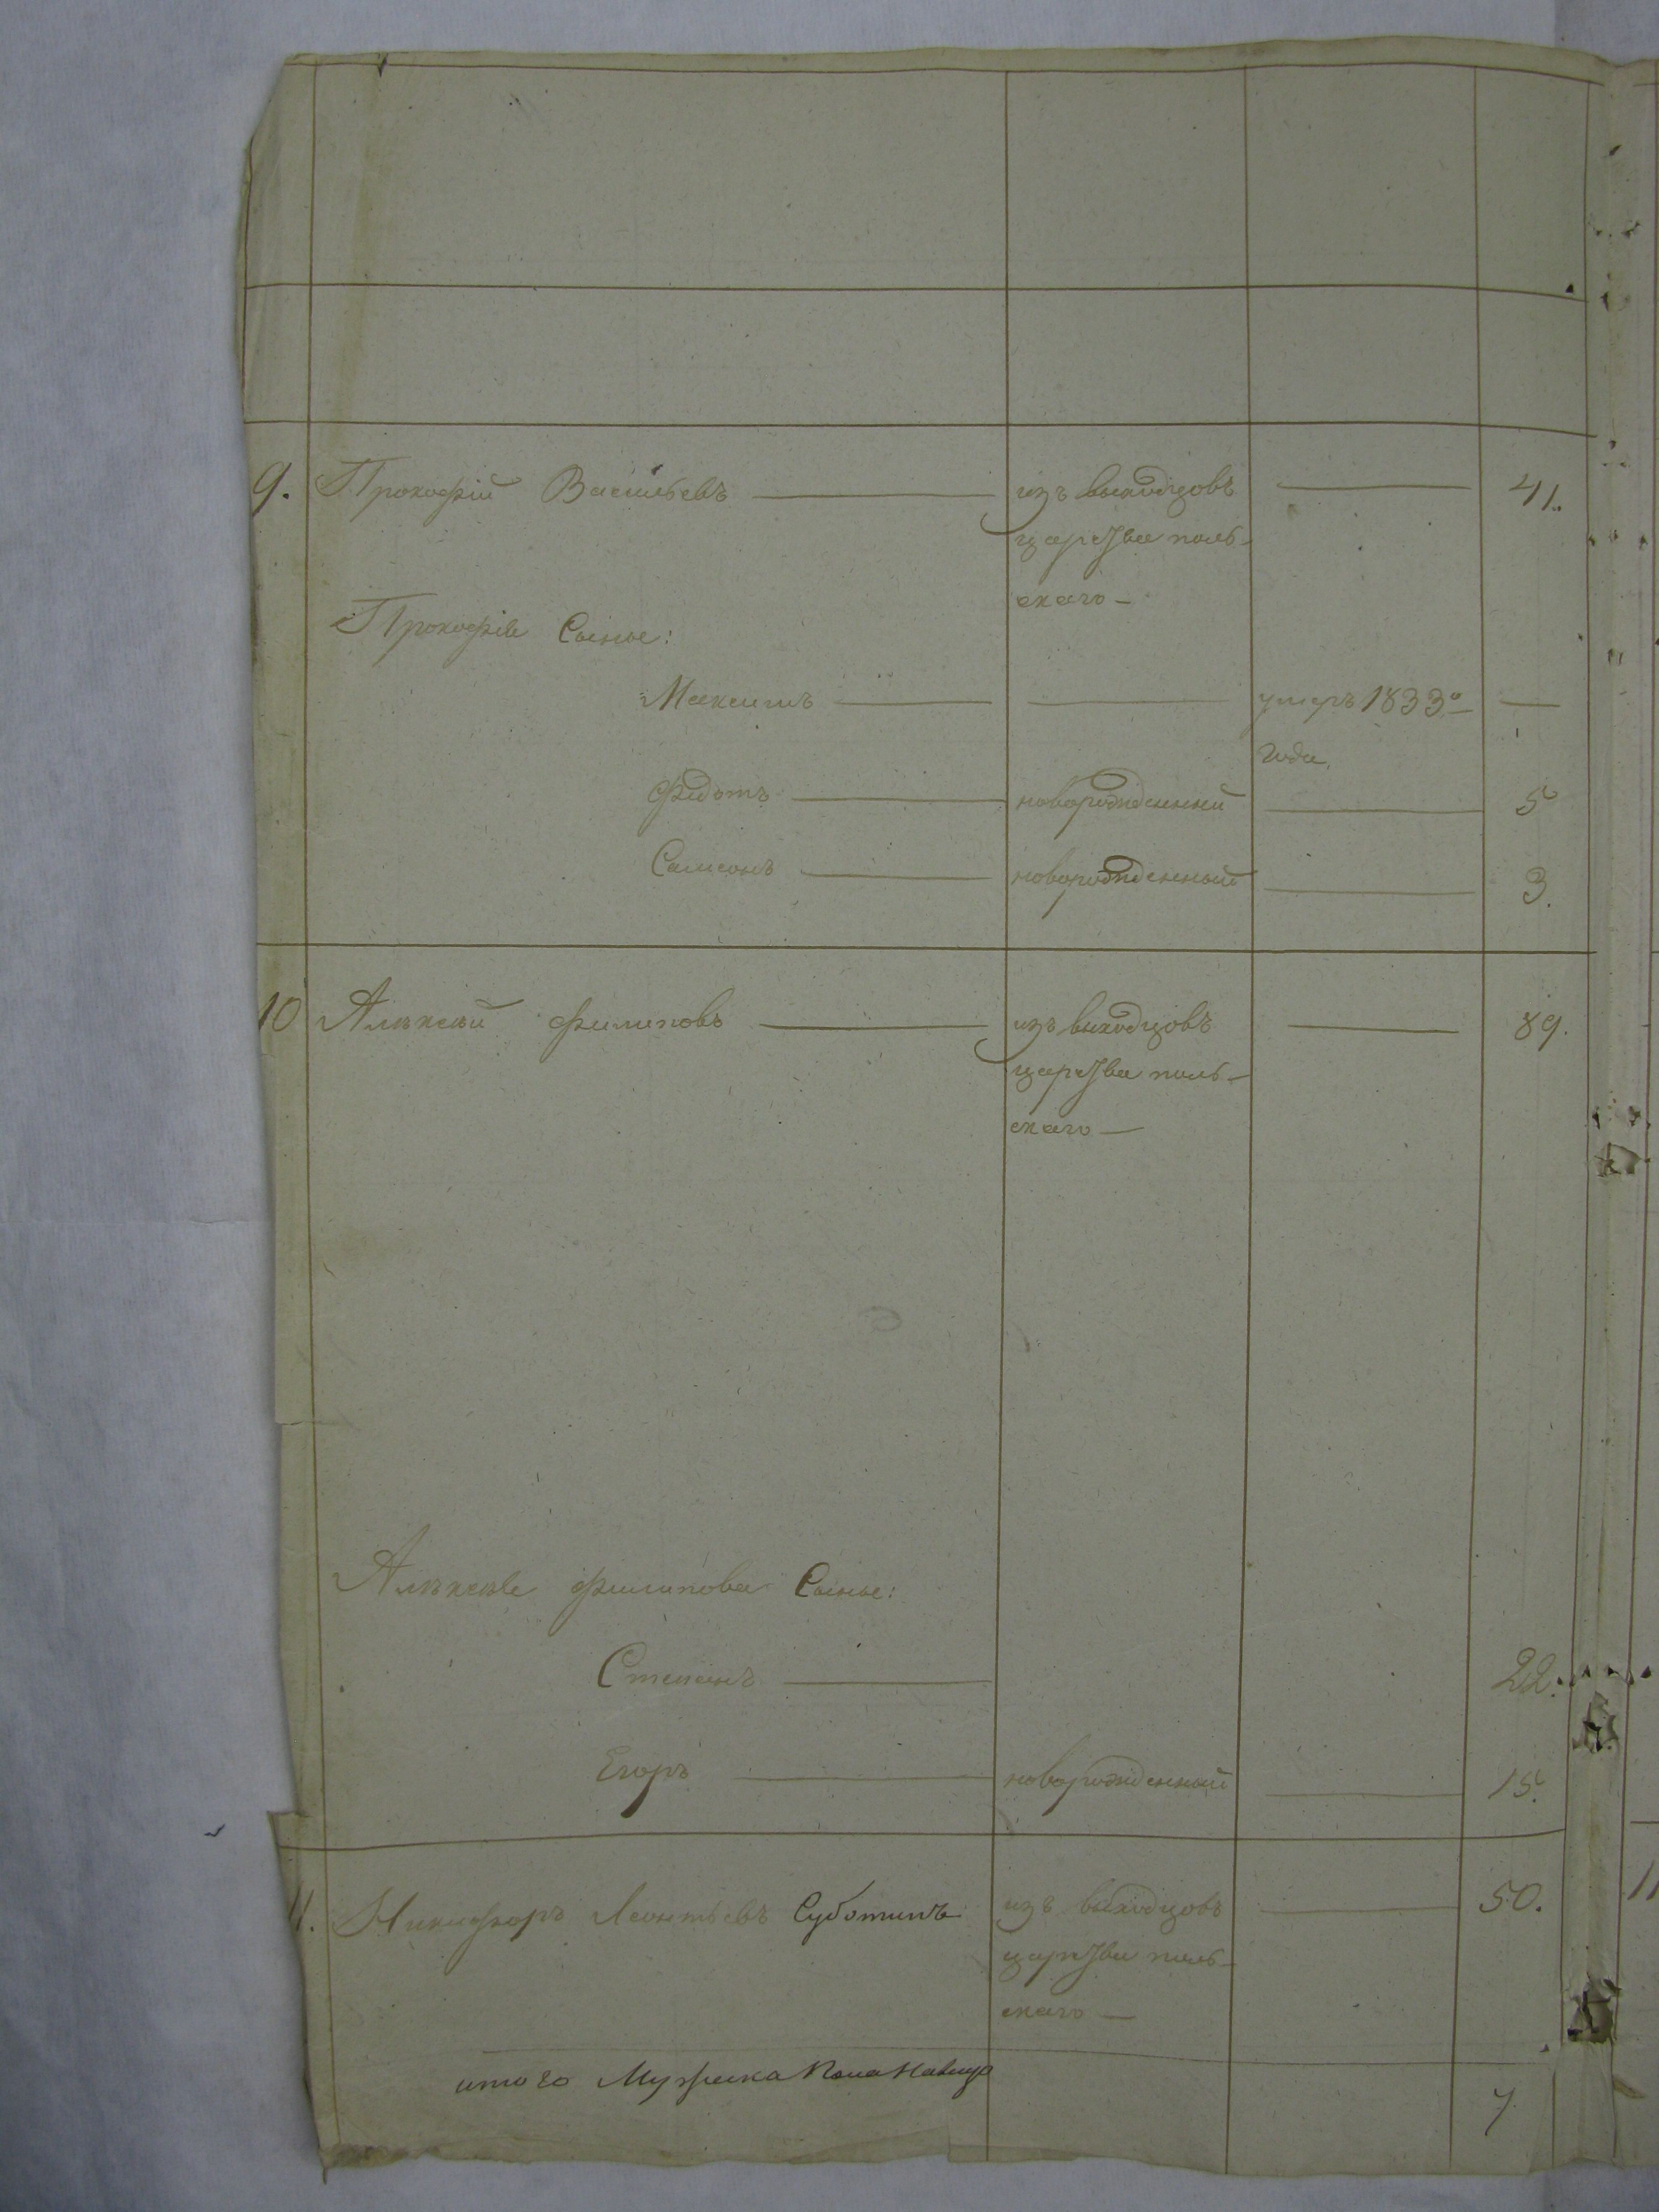 9. Прокофій Васильевъ — изъ выходцовъ — 41.
царства поль-
скаго —
Прокофія Сынье:
Максимъ — — умеръ 1833го —
года
Федотъ — новорожденный — 5
Самсонъ — новорожденный — 3.
10 Алѣксѣй Филиповъ — изъ выходцовъ — 89.
царства поль-
скаго —
Алѣксѣя Филипова Сынье:
Степанъ — 22.
Егоръ — новорожденный — 15.
11. Никифоръ Леонтьевъ Суботинъ изъ выходцовъ — 50. 11
царства поль-
скаго —
итого Мужеска Пола На лицо 7